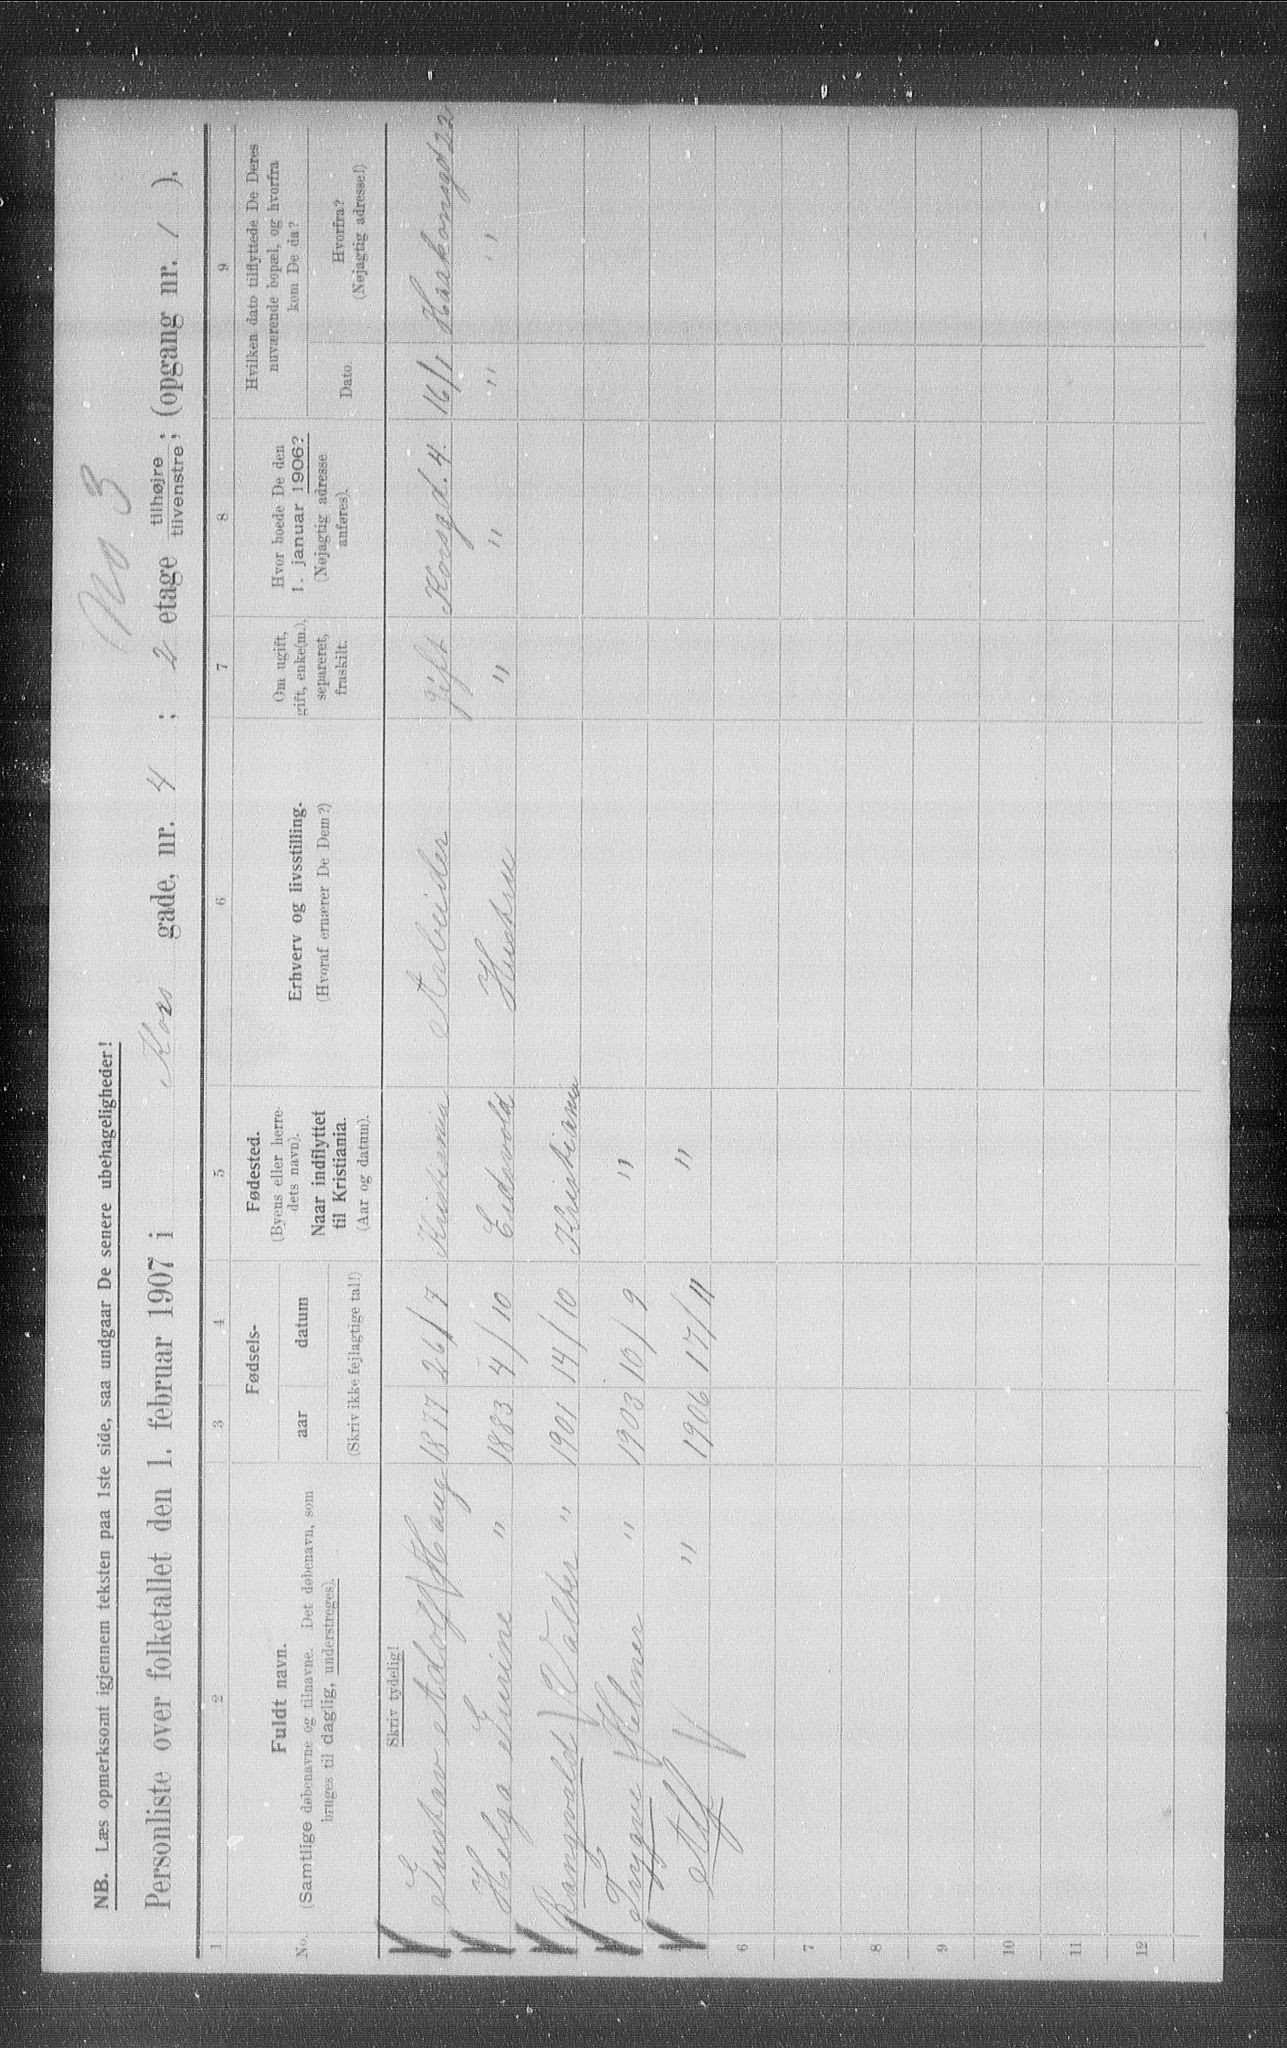 No 3
NB. Læs opmerksomt igjennem teksten paa 1ste side, saa undgaar De senere ubehageligheder!
Personliste over folketallet den 1. februar 1907 i Kors gade, nr. 4 ; 2 etage tilhøjre / tilvenstre ; (opgang nr. 1 ).
1 2 3 4 5 6 7 8 9
No.
Fuldt navn.
(Samtlige døbenavne og tilnavne. Det døbenavn, som
bruges til daglig, understreges).
Fødsels-
aar datum
(Skriv ikke fejlagtige tal!)
Fødested.
(Byens eller herre-
dets navn).
Naar indflyttet
til Kristiania.
(Aar og datum).
Erhverv og livsstilling.
(Hvoraf ernærer De Dem?)
Om ugift,
gift, enke(m.),
separeret,
fraskilt.
Hvor boede De den
1. januar 1906?
(Nøjagtig adresse
anføres).
Hvilken dato tilflyttede De Deres
nuværende bopæl, og hvorfra
kom De da?
Dato.
Hvorfra?
(Nøjagtig adresse!)
Skriv tydelig!
Gustav Adolf Haug 1877 26/7 Kristiania Arbeider gift Korsgd. 4. 16/1 Haakonsgd 22
Helga " 1883 4/10 Eidsvold Hustru " " " "
Rangvald Valter " 1901 14/10 Kristiania
Trygve Helmer " 1903 10/9 "
Alf " 1906 17/11 "
6
7
8
9
10
11
12